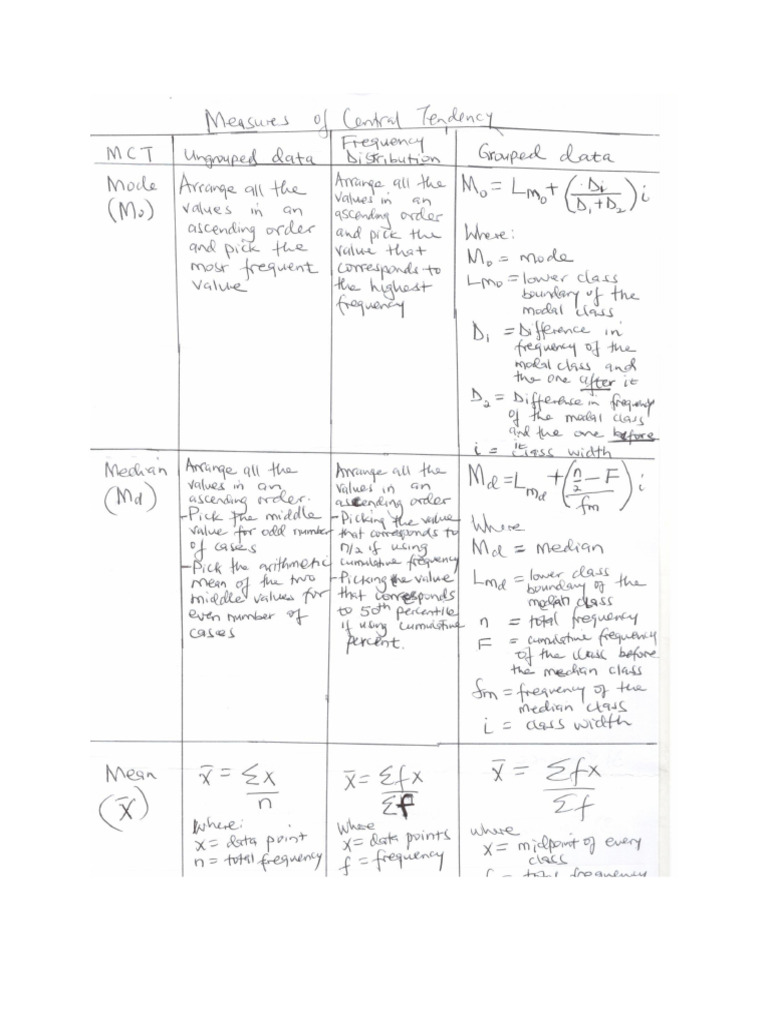 Measures of Central Tendency
MCT
Ungrouped data
Frequency
Distribution
Grouped data
Mode
(Mo)
Arrange all the
values in an
ascending order
and pick the
most frequent
value
Arrange all the
values in an
ascending order
and pick the
value that
corresponds to
the highest
frequency
Mo = Lmo + (D1 / (D1 + D2)) i
Where:
Mo = mode
Lmo = lower class
boundary of the
modal class
D1 = Difference in
frequency of the
modal class and
the one after it
D2 = Difference in frequency
of the modal class
and the one before
it
i = class width
Median
(Md)
Arrange all the
values in an
ascending order.
- Pick the middle
value for odd number
of cases
- Pick the arithmetic
mean of the two
middle values for
even number of
cases
Arrange all the
values in an
ascending order
- Picking the value
that corresponds to
n/2 if using
cumulative frequency
- Picking the value
that corresponds
to 50th percentile
if using cumulative
percent.
Md = Lmd + ((n/2 - F) / fm) i
Where
Md = median
Lmd = lower class
boundary of the
class
n = total frequency
F = cumulative frequency
of the class before
the median class
fm = frequency of the
median class
i = class width
Mean
(X̄)
X̄ = Σx / n
Where:
x = data point
n = total frequency
X̄ = Σfx / Σf
Where
x = data points
f = frequency
X̄ = Σfx / Σf
where
x = midpoint of every
class
f = total frequency